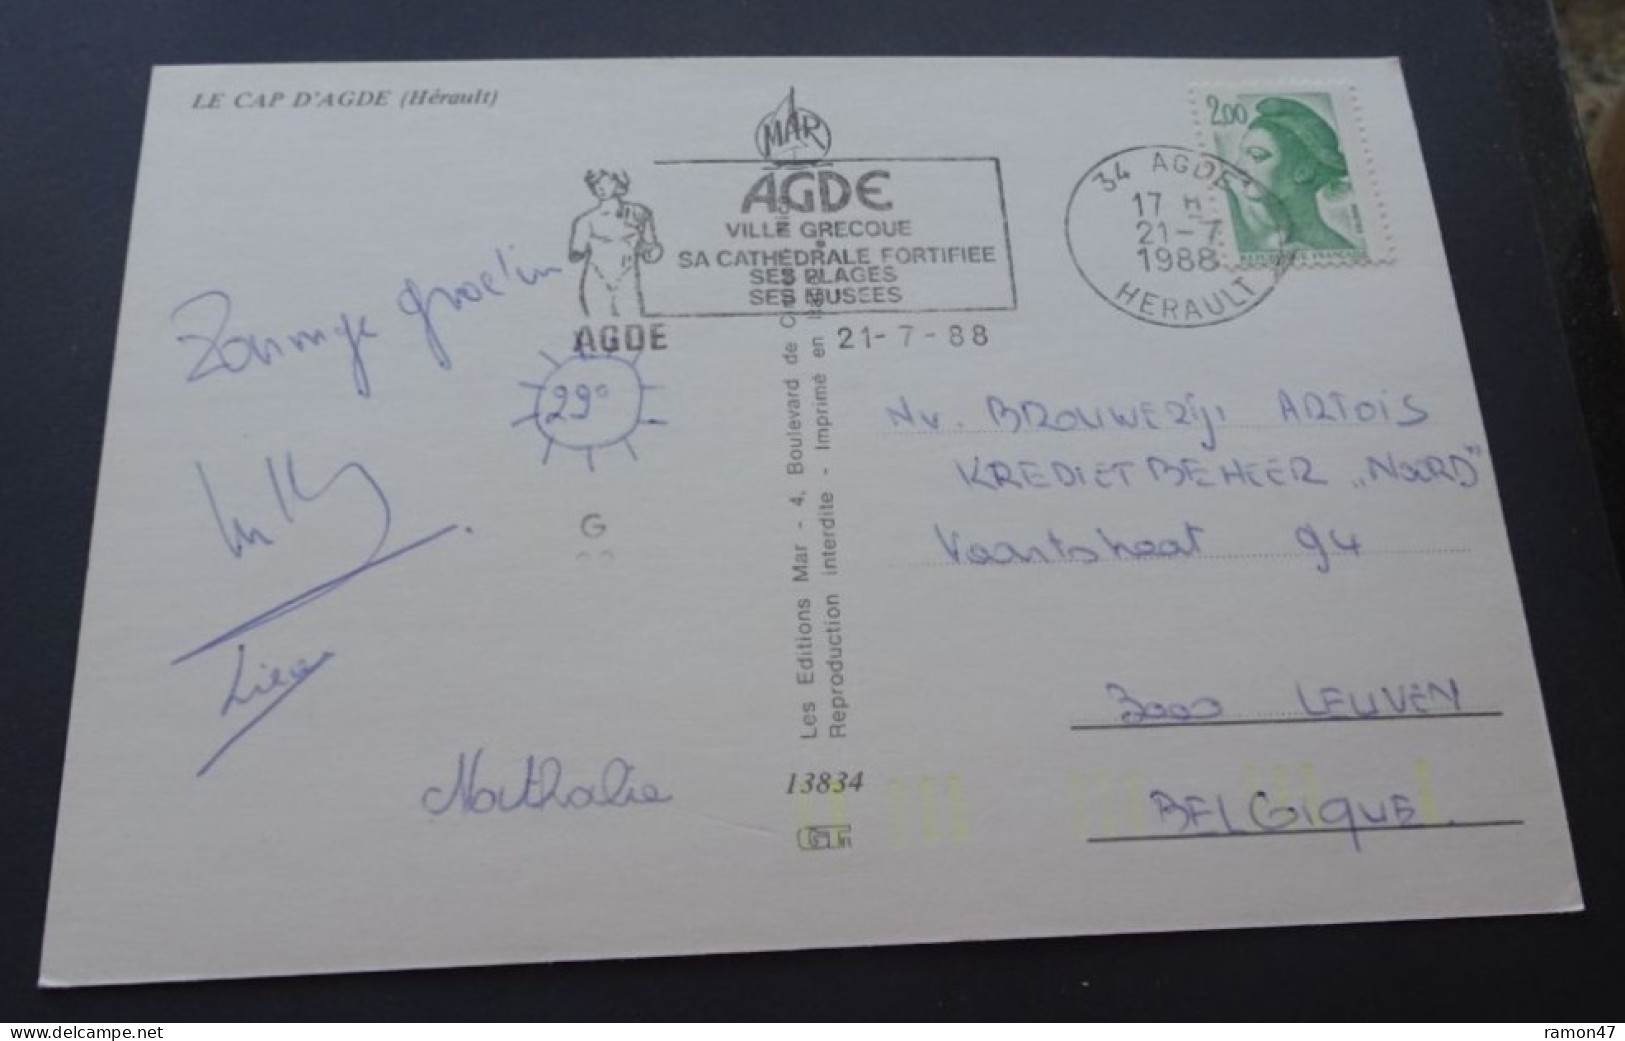 LE CAP D'AGDE (Hérault)
MAR
AGDE
VILLE GRECQUE
SA CATHEDRALE FORTIFIEE
SES PLAGES
SES MUSEES
AGDE
21-7-88
34 AGDE
17 H
21-7
1988
HERAULT
2,00
REPUBLIQUE FRANÇAISE
Zonnige groeten
29°
G
Lieve
Nathalie
Les Editions Mar - 4, Boulevard de
Reproduction interdite - Imprimé en
13834
NV. BROUWERIJ ARTOIS
KREDIETBEHEER „NOORD"
Vaartstraat 94
3000 LEUVEN
BELGIQUE.
www.delcampe.net
ramon47